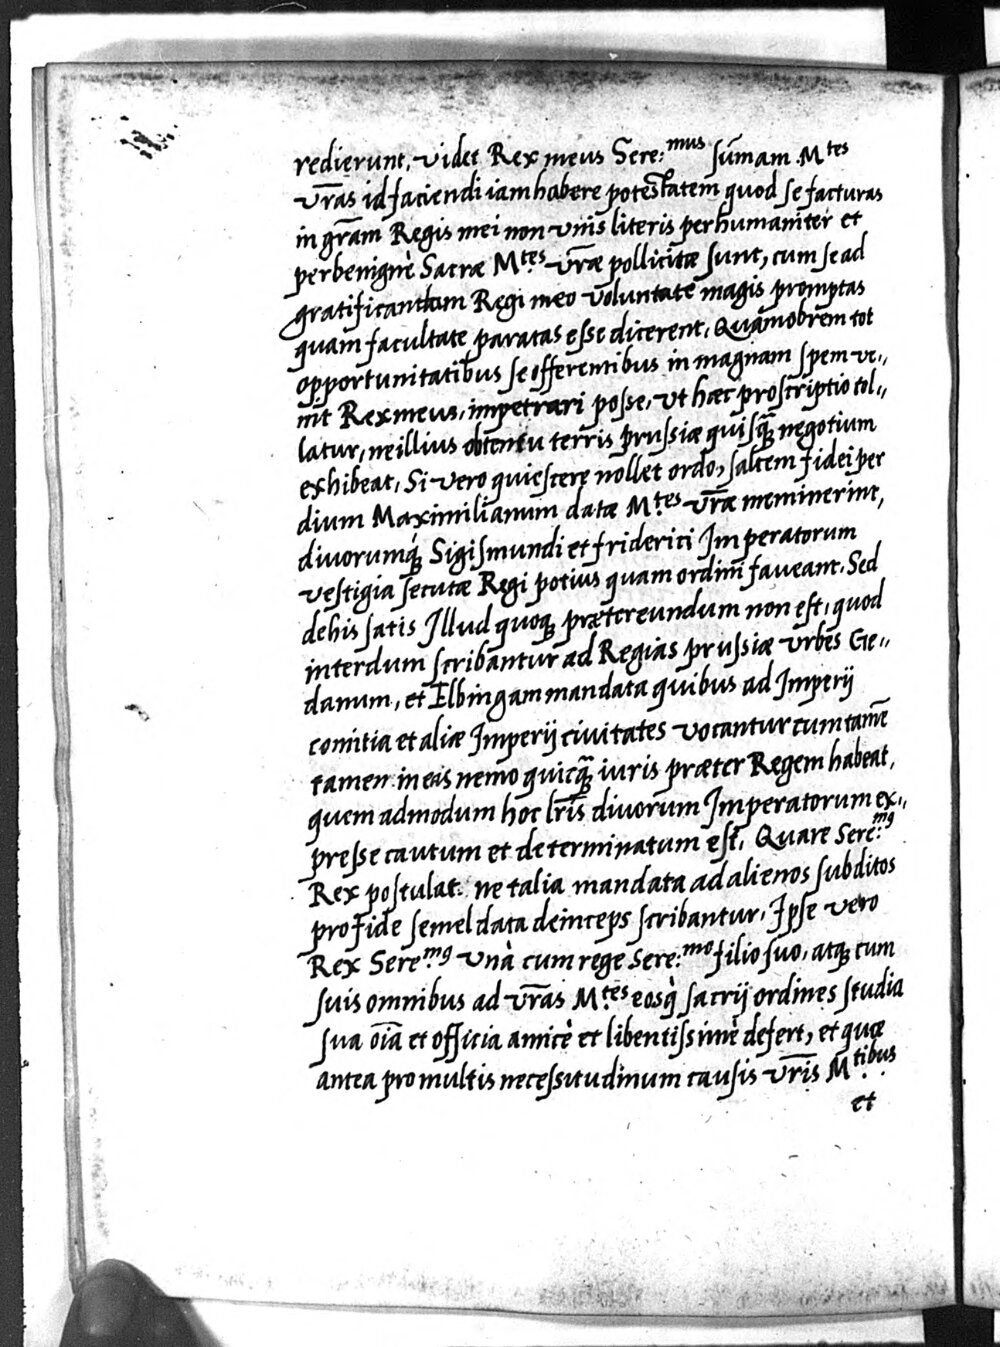 redierunt, videt Rex meus Sere:mus sum̄am Mtes
vr̄as id faciendi iam habere potestatem quod se facturas
in gr̄am Regis mei non vnis literis perhumaniter et
perbenignè Sacræ M:tes vr̄æ pollicitæ sunt, cum se ad
gratificandum Regi meo voluntate magis promptas
quam facultate paratas esse dicerent, Quamobrem tot
opportunitatibus se offerentibus in magnam spem ve„
nit Rex meus, impetrari posse, vt hæc proscriptio tol„
latur, ne illius obtentu terris prussiæ quisq̃ negotium
exhibeat, Si vero quiescere nollet ordo, saltem fidei per
dium Maximilianum datæ M:tes vr̄æ meminerint,
diuorumq́; Sigismundi et friderici Imperatorum
vestigia secutæ Regi potius quam ordini faueant. Sed
de his satis Illud quoq; prætereundum non est, quod
interdum scribantur ad Regias prussiæ vrbes Ge„
danum, et Elbingam mandata quibus ad Imperij
comitia et aliæ Imperij ciuitates vocantur cum tame
tamen in eis nemo quicq̃ iuris præter Regem habeat,
quem admodum hoc lr̄is diuorum Imperatorum ex„
presse cautum et determinatum est, Quare Sere:m9
Rex postulat ne talia mandata ad alienos subditos
pro fide semel data deinceps scribantur, Ipse vero
Rex Sere:m9 Vnà cum rege Sere:mo filio suo, atq; cum
suis omnibus ad vr̄as M:tes eosq̀ sacrij ordines studia
sua oīa et officia amicè et libentissimè defert, et quæ
antea pro multis necessitudinum causis vr̄is M:tibus
et